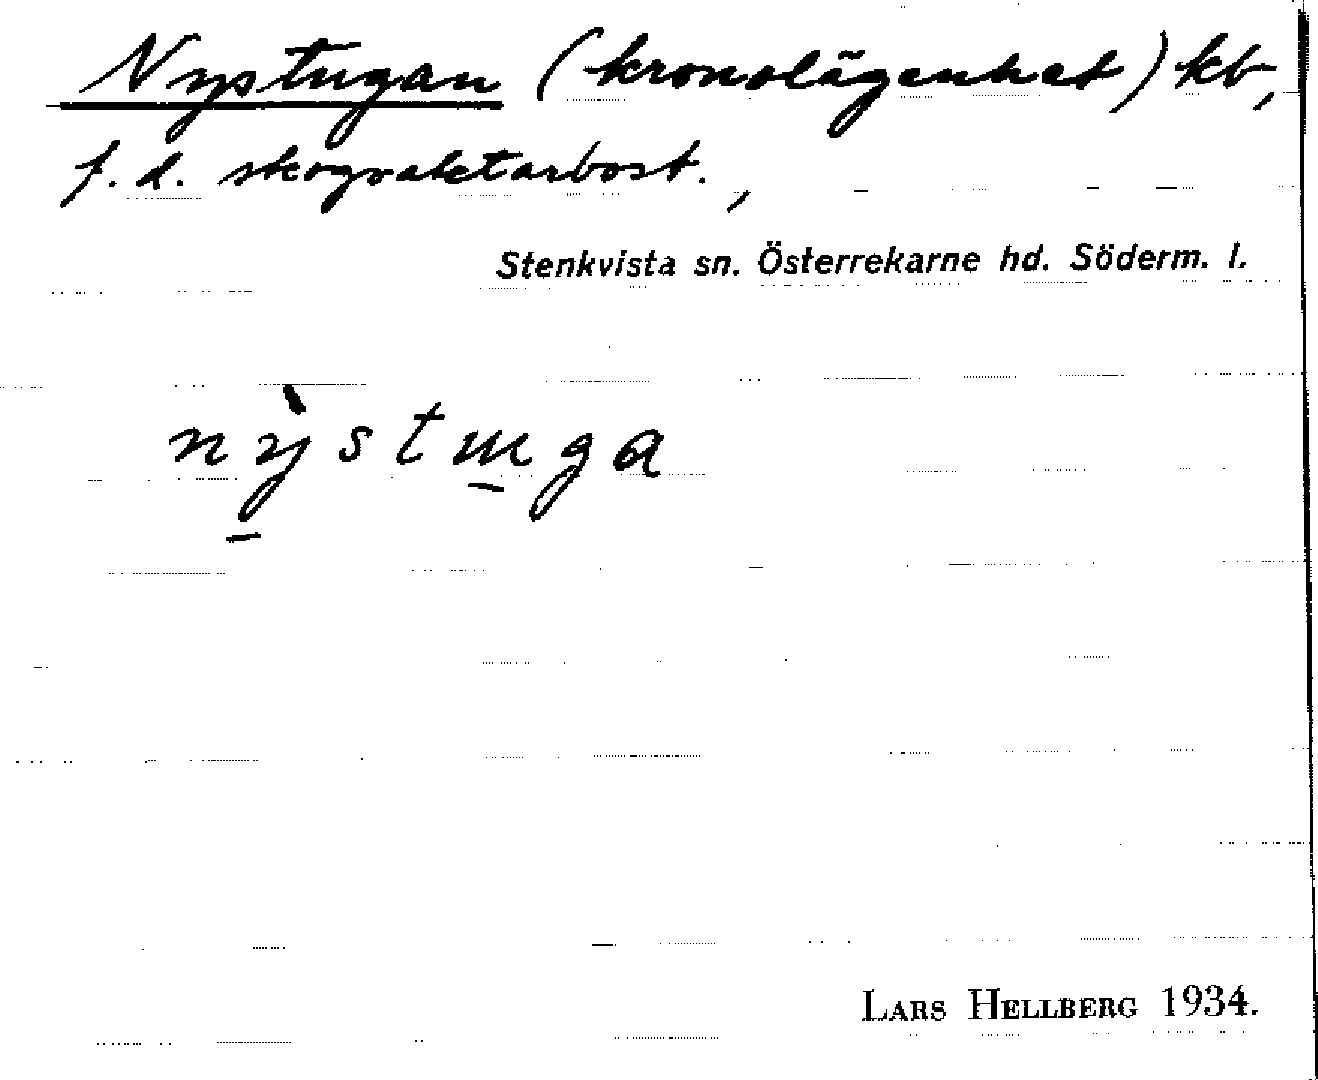 Nystugan (kronolägenhet) kb,
f. d. skogvaktarbost. ,
Stenkvista sn. Österrekarne hd. Söderm. l.
nỳstuga
LARS HELLBERG 1934.